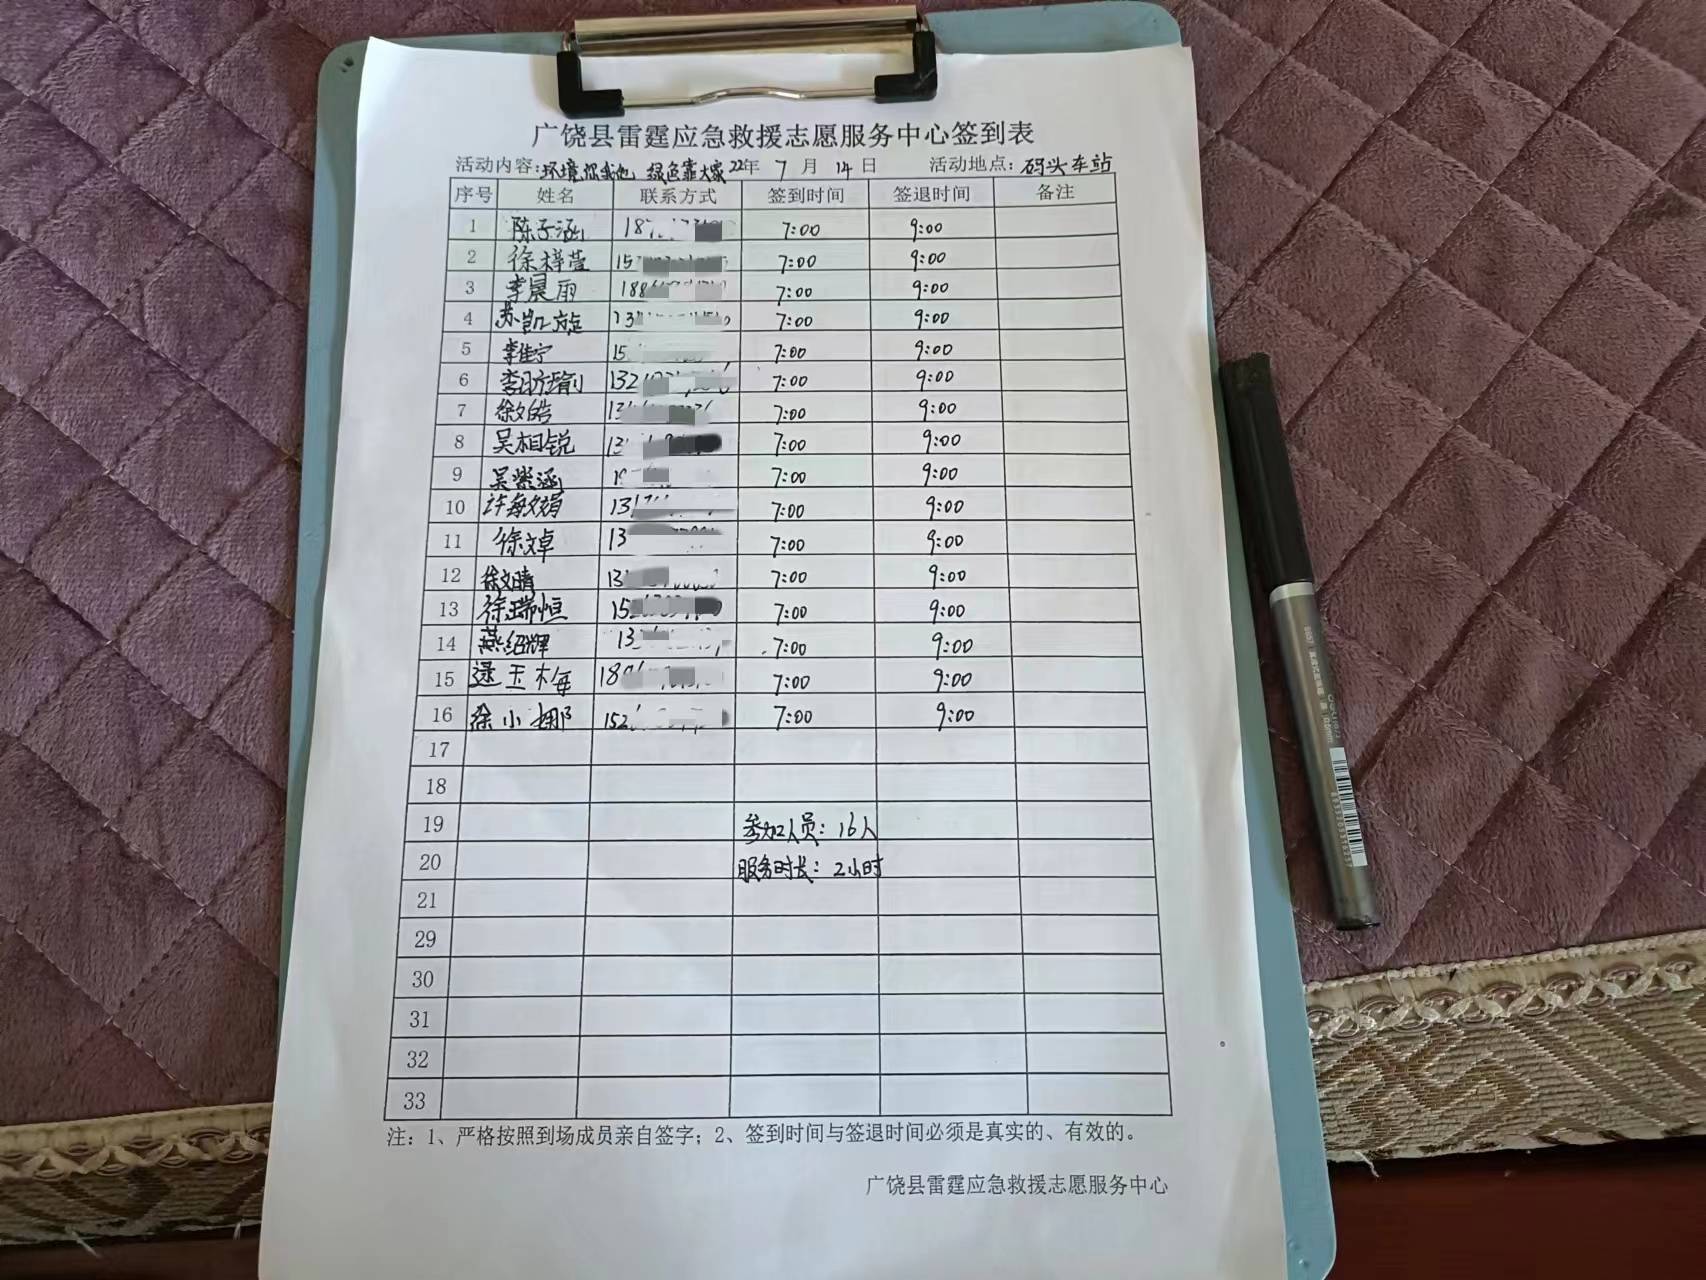 广饶县雷霆应急救援志愿服务中心签到表
活动内容:环境你我他 绿色靠大家 22年 7 月 14 日 活动地点:码头车站
序号 姓名 联系方式 签到时间 签退时间 备注
1 陈子涵 7:00 9:00
2 徐梓萱 7:00 9:00
3 李晨雨 7:00 9:00
4 苏凯旋 7:00 9:00
5 李佳宁 7:00 9:00
6 7:00 9:00
7 徐文皓 7:00 9:00
8 吴相锐 7:00 9:00
9 吴紫涵 7:00 9:00
10 7:00 9:00
11 徐文卓 7:00 9:00
12 徐文晴 7:00 9:00
13 徐瑞恒 7:00 9:00
14 燕绍辉 7:00 9:00
15 逯玉梅 7:00 9:00
16 徐小娜 7:00 9:00
17
18
19 参加人员:16人
20 服务时长:2小时
21
29
30
31
32
33
注:1、严格按照到场成员亲自签字;2、签到时间与签退时间必须是真实的、有效的。
广饶县雷霆应急救援志愿服务中心